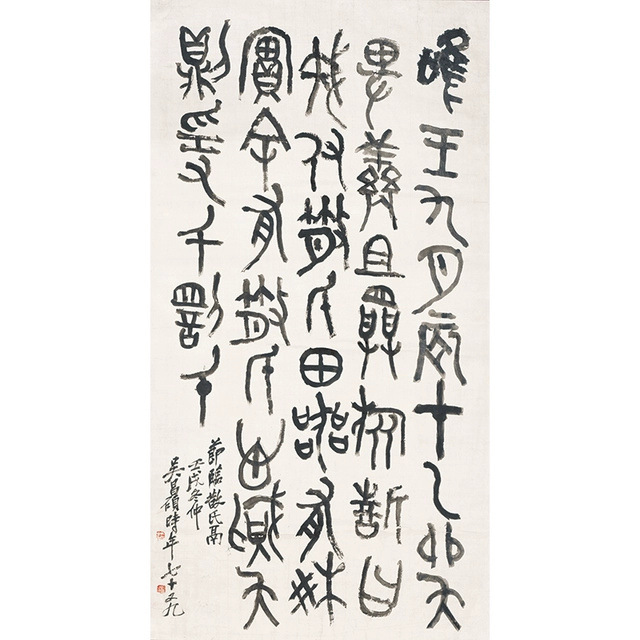 唯王九月辰才乙卯夨
卑義且旅誓曰
我付散氏田器有爽
實余有散氏心賊
則爰千罰千
節臨散氏鬲
壬戌冬仲
吳昌碩時年七十又九